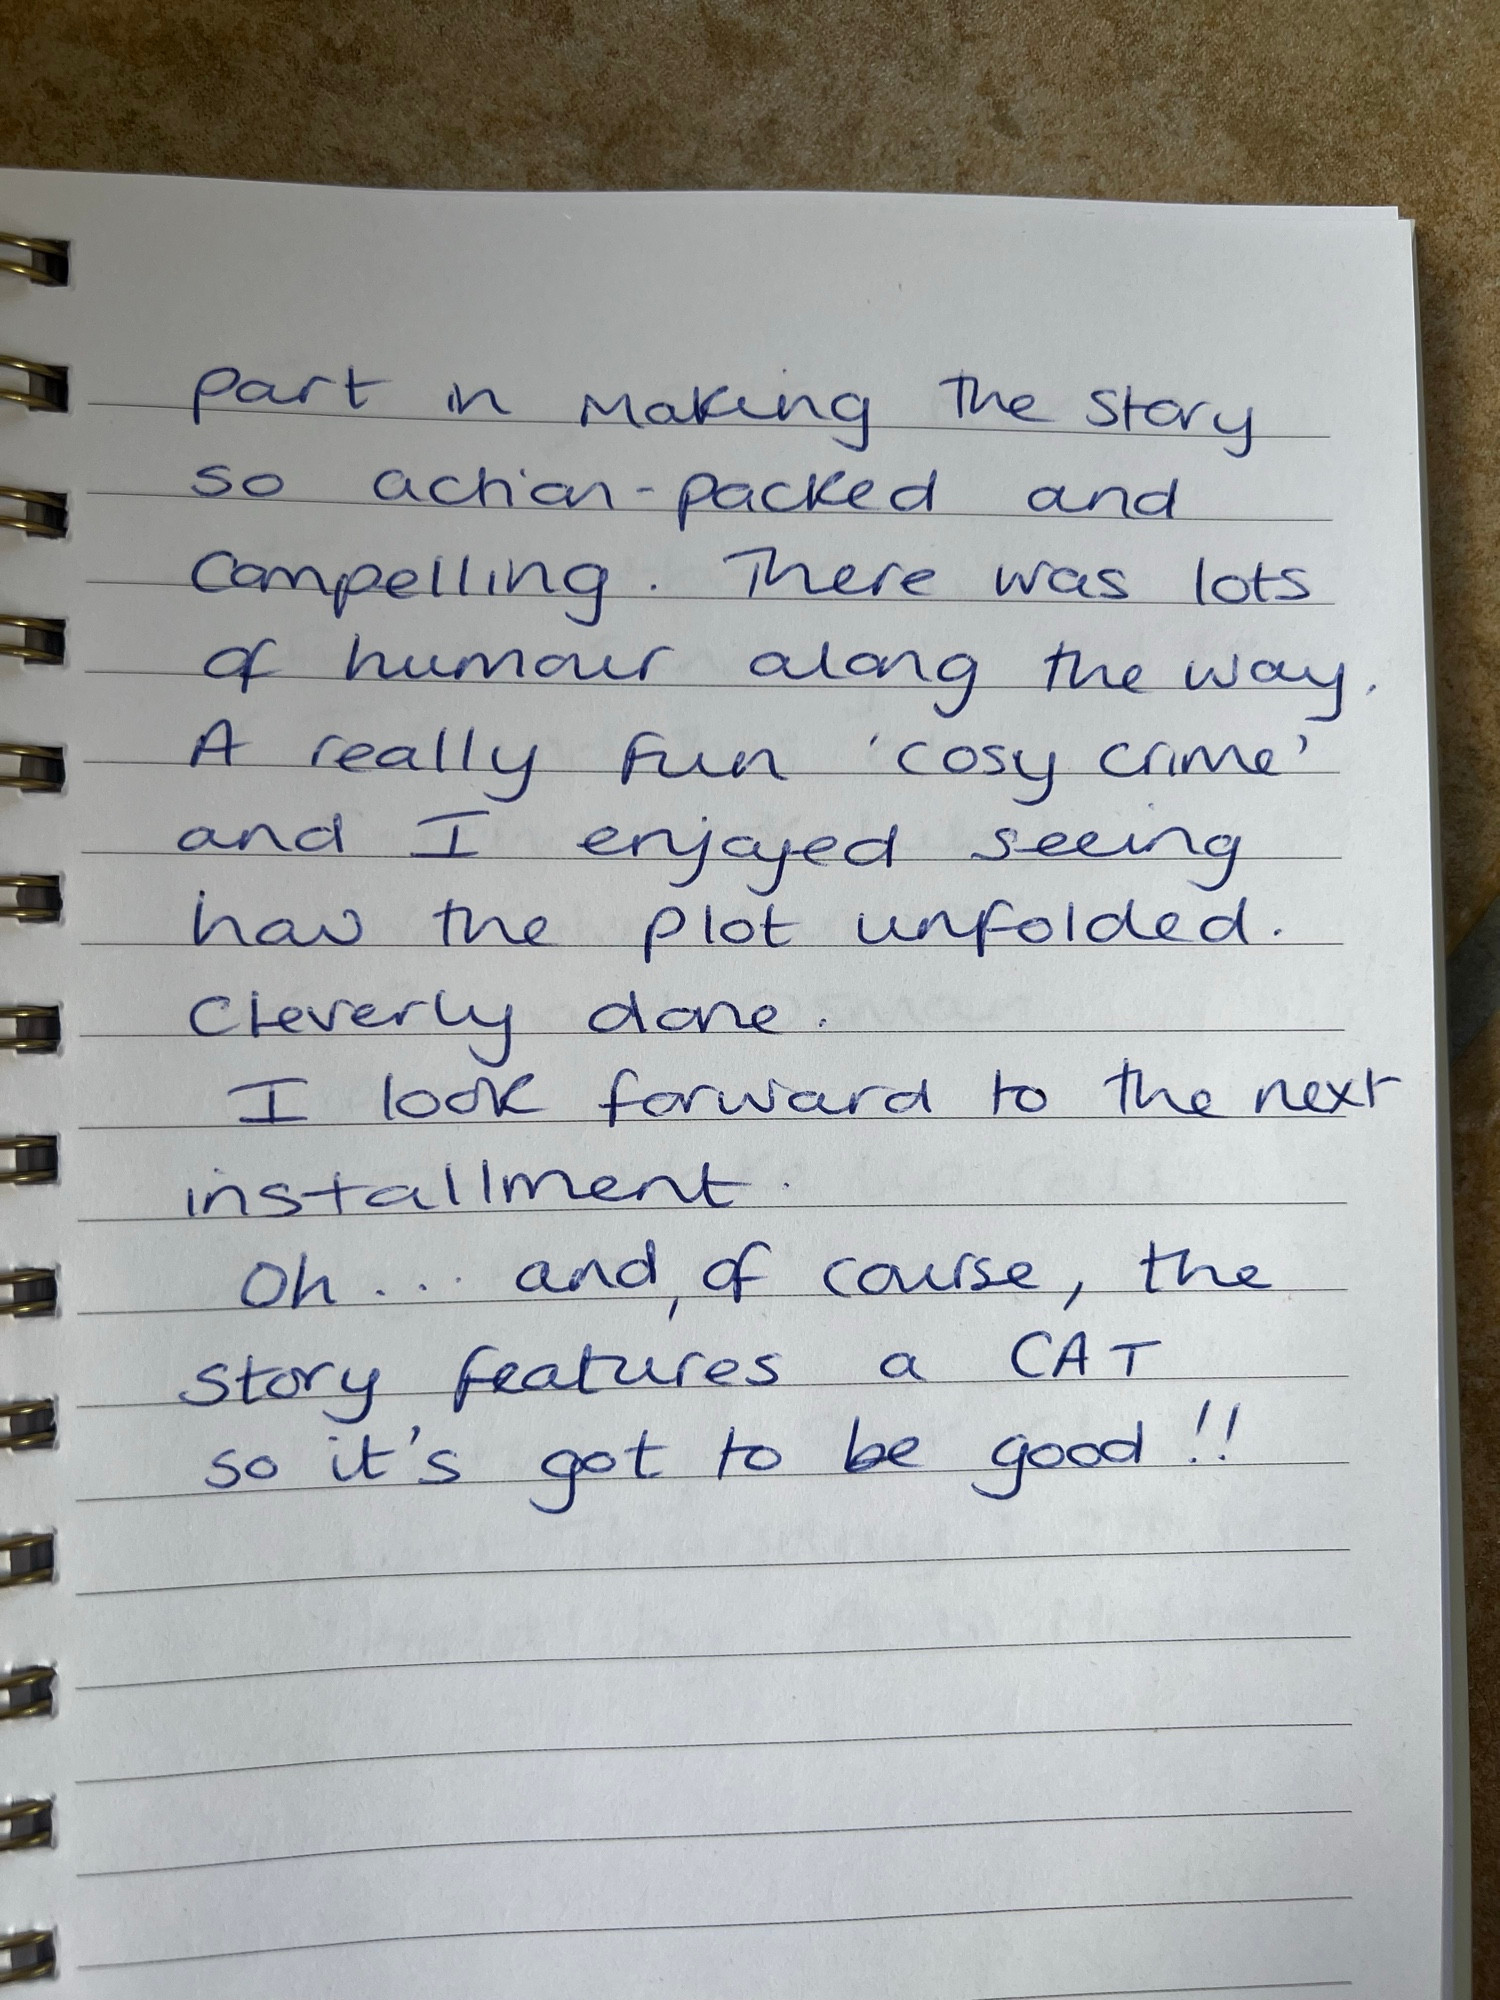 part in making the story
so action-packed and
compelling. There was lots
of humour along the way.
A really fun 'cosy crime'
and I enjoyed seeing
how the plot unfolded.
Cleverly done.
I look forward to the next
installment.
Oh... and, of course, the
story features a CAT
so it's got to be good!!